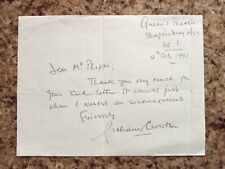 Queen's Theatre
Shaftesbury Ave
W 1
4th Feb 1991
Dear Mr Phipps,
Thank you very much for
your kind letter. It arrived just
when I needed an encouragement
Sincerely
Graham Crowden